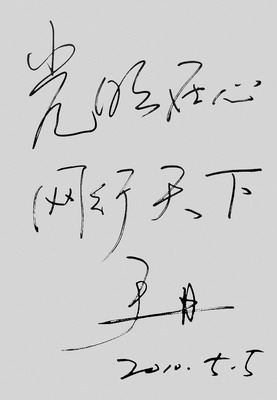 光明在心
网行天下
王丹
2010.5.5